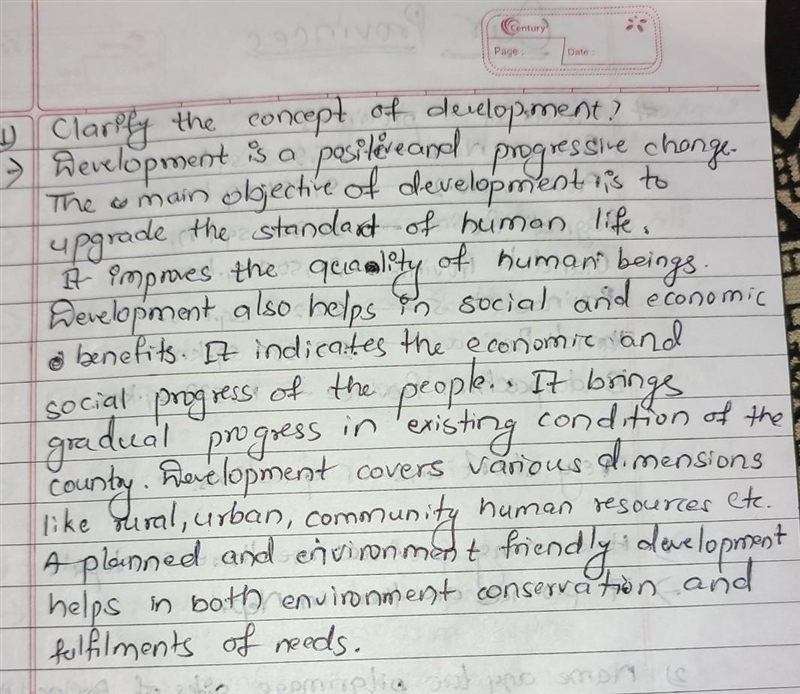 Century
Page : Date :
1) Clarify the concept of development?
→ Development is a positive and progressive change.
The main objective of development is to
upgrade the standart of human life.
It improves the quality of human beings.
Development also helps in social and economic
benefits. It indicates the economic and
social progress of the people. It brings
gradual progress in existing condition of the
county. Development covers various dimensions
like rural, urban, community human resources etc.
A planned and environment friendly development
helps in both environment conservation and
fulfilments of needs.